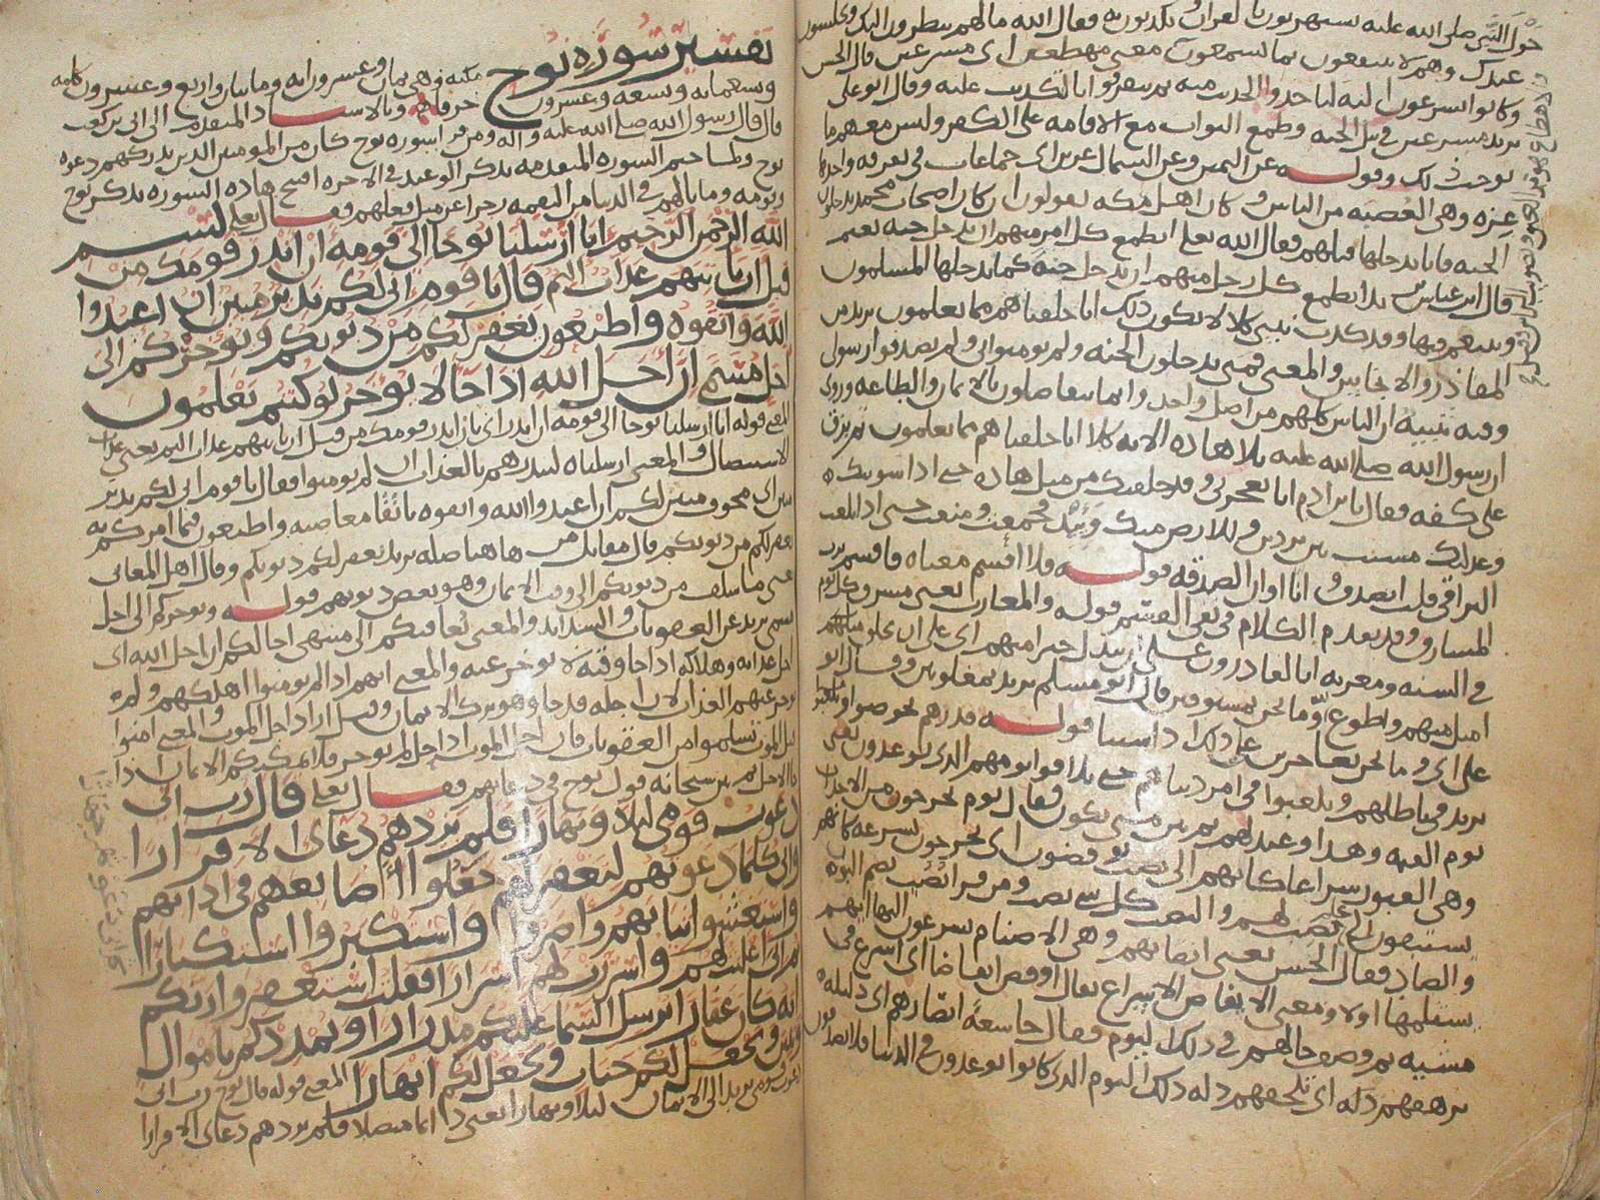 حول النبي صلى الله عليه يستهزون بالقران ويكذبون به فقال الله ما لهم ينظرون اليك ويجلسون
عندك وهم لا ينتفعون بما يسمعون معنى مهطعين اي مسرعين قال الحسن
وكانوا يسرعون اليه لياخذوا الحديث منه ثم يتفرقوا بالتكذيب عليه وقال ابو علي
يريد مسرعين في نيل الجنه وطمع الثواب مع الاقامه على الكفر وليس معهم ما
يوجب ذلك وقوله عن اليمين وعن الشمال عزين اي جماعات في تفرقه واحدها
عزه وهي العصبه من الناس وكان اهل مكه يقولون ان كان اصحاب محمد يدخلون
الجنه فانا ندخلها قبلهم فقال الله تعلى ايطمع كل امرء منهم ان يدخل جنه نعيم
قال ابن عباس يريد ايطمع كل رجل منهم ان يدخل جنة كما يدخلها المسلمون
ويتنعم فيها وقد كذب نبيي كلا لا يكون ذلك انا خلقناهم مما يعلمون يريد من
المقاذر والانجاس والمعنى فمتى يدخلون الجنه ولم يومنوا بي ولم يصدقوا رسولي
وفيه تنبيه ان الناس كلهم من اصل واحد وانما يتفاضلون بالايمان والطاعه وروي
ان رسول الله صلى الله عليه تلا هاذه الايه كلا انا خلقناهم مما يعلمون ثم بزق
على كفه فقال يا بن ادم انا تعجزني وقد خلقتك من مثل هاذه حتى اذا سويتك
وعدلتك مشيت بين بردين وللارض منك وئيد فجمعت ومنعت حتى اذا بلغت
التراقي قلت اتصدق وانا اوان الصدقه قوله فلا اقسم معناه فاقسم برب
المشارق وقد تقدم الكلام في نفي القسم قوله والمغارب يعني مشرق كل يوم
في السنه ومغربه انا لقادرون على ان نبدل خيرا منهم اي على ان نخلق مثلهم
امثل منهم واطوع لله وما نحن بمسبوقين قال ابو مسلم يريد بمغلوبين وقال ابو
على اي وما نحن بعاجزين على ذلك اذا شينا قوله فذرهم يخوضوا ويلعبوا
يريد في باطلهم ويلعبوا في امر دنياهم حتى يلاقوا يومهم الذي يوعدون يعني
يوم القيمه وهذا وعيد لهم ثم بين متى يكون فقال يوم يخرجون من الاجداث
وهي القبور سراعا كانهم الى نصب يوفضون اي يخرجون بسرعه كانهم
يستبقون الى علم نصب لهم والنصب كل شي نصب ومن قرا نصب بضم النون
والصاد فقال الحسن يعني انصابهم وهي الاصنام يسرعون اليها ايهم
يستلمها اولا ومعنى الايفاض الاسراع يقال اوفض ايفاضا اي اسرع في
مشيه ثم وصف حالهم في ذلك اليوم فقال خاشعة ابصارهم اي ذليله
ترهقهم ذله اي تلحقهم ذله ذلك اليوم الذي كانوا يوعدون في الدنيا
تفسير سورة نوح
مكيه وهي ثمان وعشرون ايه ومايتان واربع وعشرون كلمه
وتسعمايه وتسعه وعشرون حرفا وبالاسناد المتقدم الى ابي بن كعب
قال قال رسول الله صلى الله عليه واله ومن قرا سوره نوح كان من المومنين الذين تدركهم دعوه
نوح ولما ختم السوره المتقدمه بذكر الوعيد في الاخره افتتح هاذه السوره بذكر نوح
وقومه وما نالهم في الدنيا من النقمه زجرا عن مثل فعلهم فقال تعلى بسم
الله الرحمن الرحيم انا ارسلنا نوحا الى قومه ان انذر قومك من
قبل ان ياتيهم عذاب اليم قال يا قوم اني لكم نذير مبين ان اعبدوا
الله واتقوه واطيعون يغفر لكم من ذنوبكم ويوخركم الى
اجل مسمى ان اجل الله اذا جا لا يوخر لو كنتم تعلمون
المعنى قوله انا ارسلنا نوحا الى قومه ان انذر اي بان انذر قومك من قبل ان ياتيهم عذاب اليم يعني عذاب
الاستيصال والمعنى ارسلناه لينذرهم بالعذاب ان لم يومنوا فقال يا قوم اني لكم نذير
مبين اي مخوف مبين لكم ان اعبدوا الله واتقوه باتقا معاصيه واطيعون فيما امركم به
يغفر لكم من ذنوبكم قال مقاتل من هاهنا صله يريد يغفر لكم ذنوبكم وقال اهل المعاني
يعني ما سلف من ذنوبكم الى وقت الايمان وهو بعض ذنوبهم قوله ويوخركم الى اجل
مسمى يريد عن العقوبات والشدايد والمعنى يعافيكم الى منتهى اجالكم ان اجل الله اي
اجل عذابه وهلاكه اذا جا وقته لا يوخر عنه والمعنى انهم اذا لم يومنوا اهلكهم ولم
يوخر عنهم العذاب لان اجله قد جا وهو تركه الايمان وقيل اراد اجل الموت والمعنى امنوا
قبل الموت تسلموا من العقوبات فان اجل الموت اذا حل لم يوخر فلا يمكنكم الايمان اذا
جا الاجل ثم بين سبحانه قول نوح في دعايهم فقال تعلى قال رب اني
دعوت قومي ليلا ونهارا فلم يزدهم دعاى الا فرارا
واني كلما دعوتهم لتغفر لهم جعلوا اصابعهم في اذانهم
واستغشوا ثيابهم واصروا واستكبروا استكبارا
ثم اني اعلنت لهم واسررت لهم اسرارا فقلت استغفروا ربكم
انه كان غفارا يرسل السما عليكم مدرارا ويمددكم باموال
وبنين ويجعل لكم جنات ويجعل لكم انهارا المعنى قوله قال نوح رب اني
دعوت قومي يريد الى الايمان ليلا ونهارا يعني دايما متصلا فلم يزدهم دعاى الا فرارا